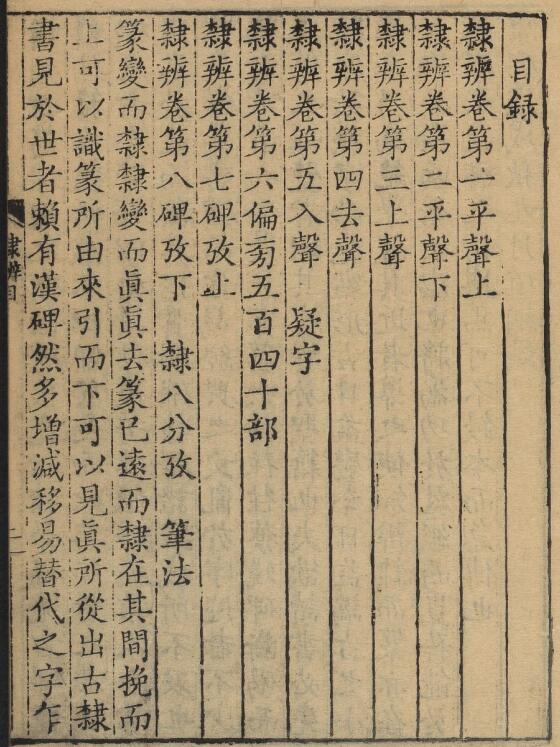 目録
隸辨卷第一平聲上
隸辨卷第二平聲下
隸辨卷第三上聲
隸辨卷第四去聲
隸辨卷第五入聲 疑字
隸辨卷第六偏㫄五百四十部
隸辨卷第七碑攷上
隸辨卷第八碑攷下 隸八分攷 筆法
篆變而隸隸變而眞眞去篆已遠而隸在其間挽而
上可以識篆所由來引而下可以見眞所從出古隸
書見於世者賴有漢碑然多增減移易替代之字乍
隸辨目